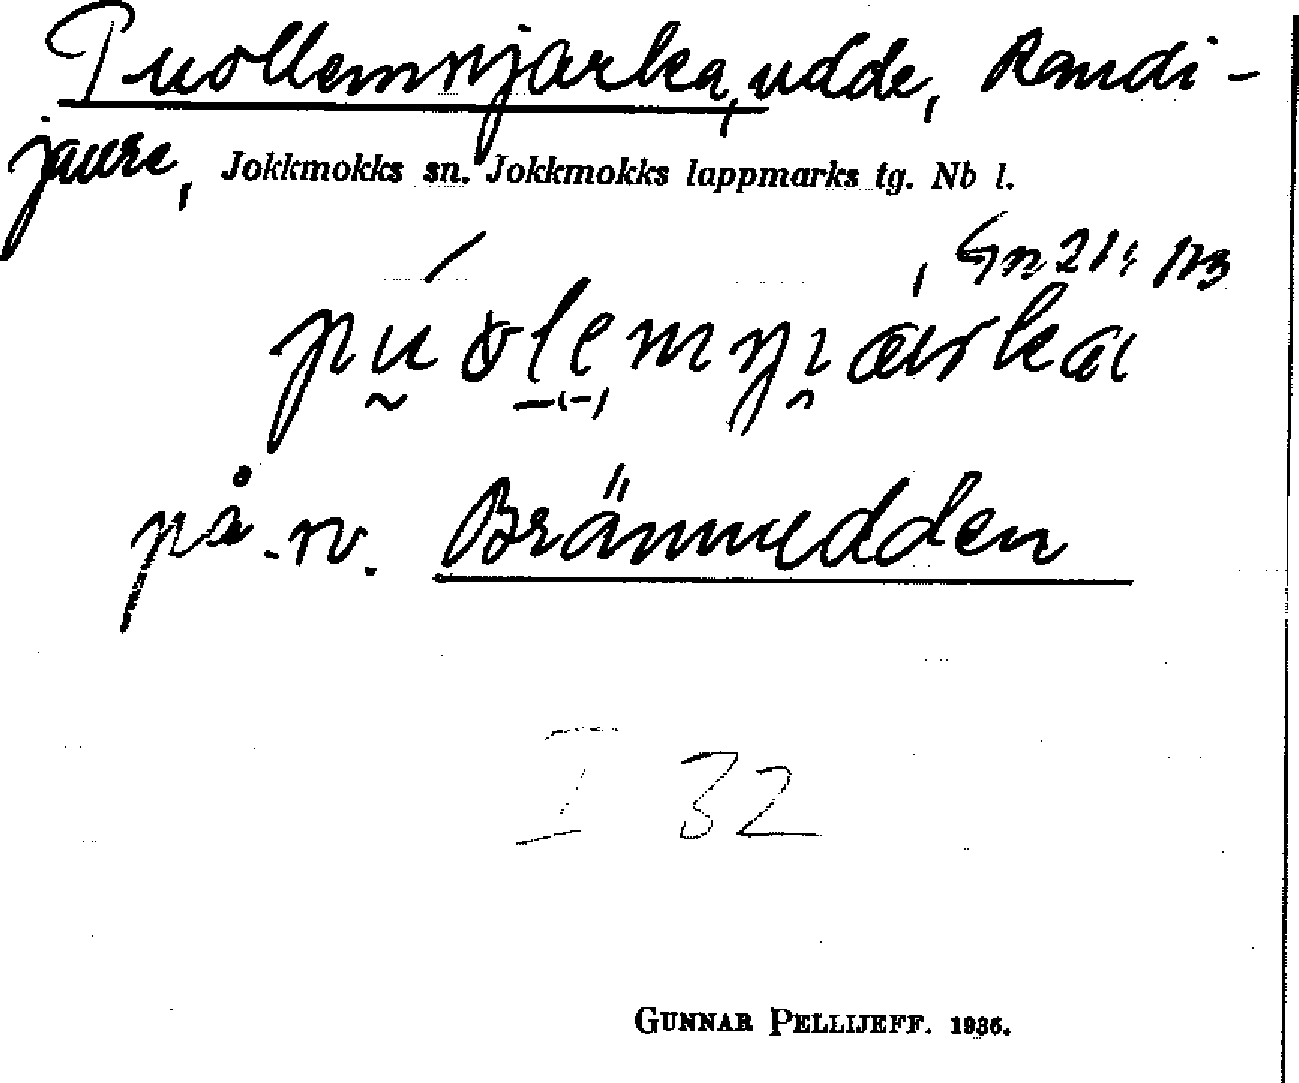 Puollemnjarka, udde, Randi-
jaure, Jokkmokks sn. Jokkmokks lappmarks tg. Nb l.
Gn 21:
på sv. Brännudden
I 32
GUNNAR PELLIJEFF. 1936.